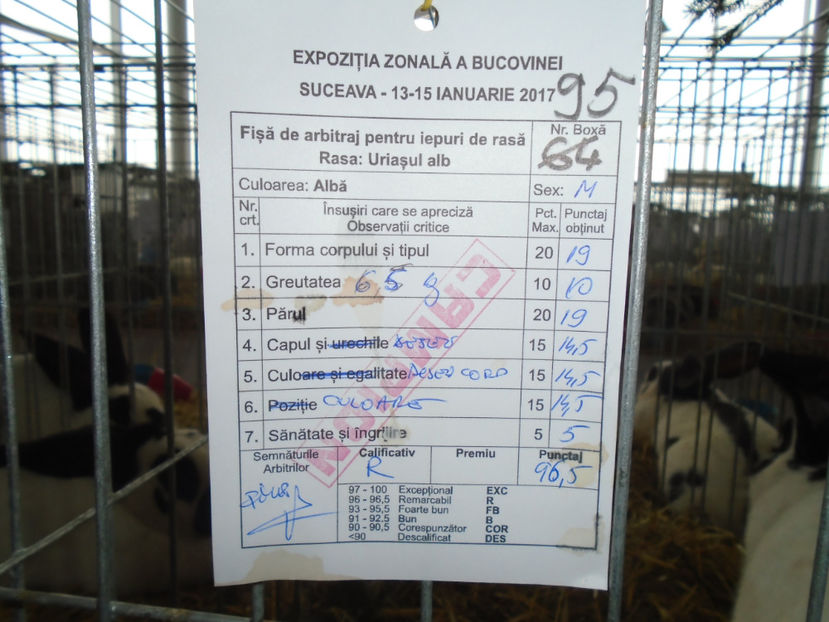 EXPOZIȚIA ZONALĂ A BUCOVINEI
SUCEAVA - 13-15 IANUARIE 2017
95
Fișă de arbitraj pentru iepuri de rasă
Rasa: Uriașul alb
Nr. Boxă
64
Culoarea: Albă
Sex: M
Nr. crt.
Însușiri care se apreciză
Observații critice
Pct. Max.
Punctaj obținut
1. Forma corpului și tipul 20 19
2. Greutatea 6,5 10 10
3. Părul 20 19
4. Capul și urechile DESEN 15 14,5
5. Culoare și egalitate DESEN CORP 15 14,5
6. Poziție CULOARE 15 14,5
7. Sănătate și îngrijire 5 5
CAMPION
Semnăturile Arbitrilor
Calificativ
R
Premiu
Punctaj
96,5
97 - 100 Excepțional EXC
96 - 96,5 Remarcabil R
93 - 95,5 Foarte bun FB
91 - 92,5 Bun B
90 - 90,5 Corespunzător COR
<90 Descalificat DES